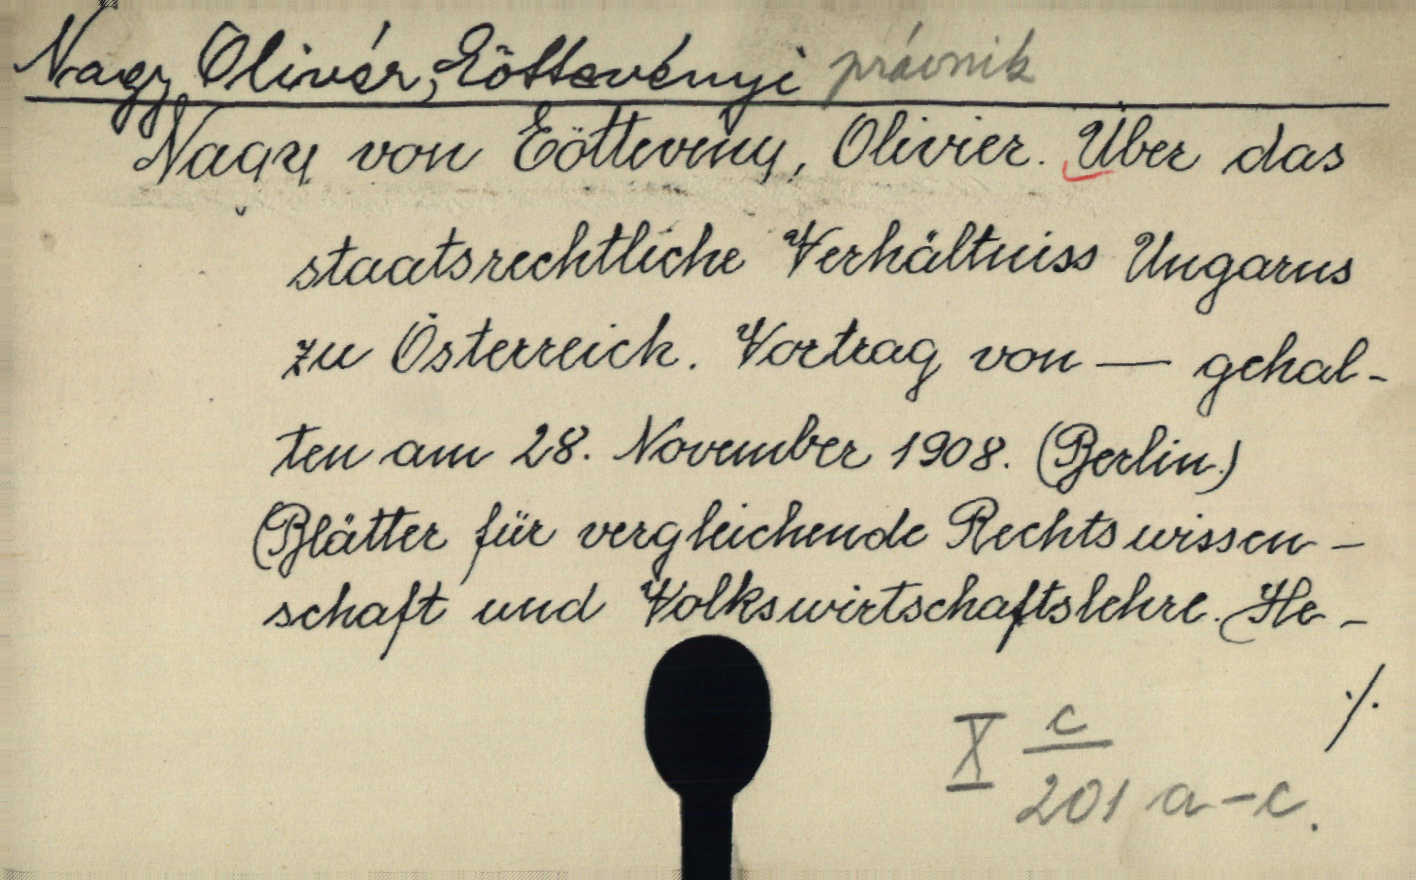 Nagy Olivér, Eöttevényi právnik
Nagy von Eöttevény, Olivier. Über das
staatsrechtliche Verhältniss Ungarns
zu Österreich. Vortrag von — gehal-
ten am 28. November 1908. (Berlin.)
(Blätter für vergleichende Rechtswissen-
schaft und Volkswirtschaftslehre. He-
./.
X c
201 a-c.